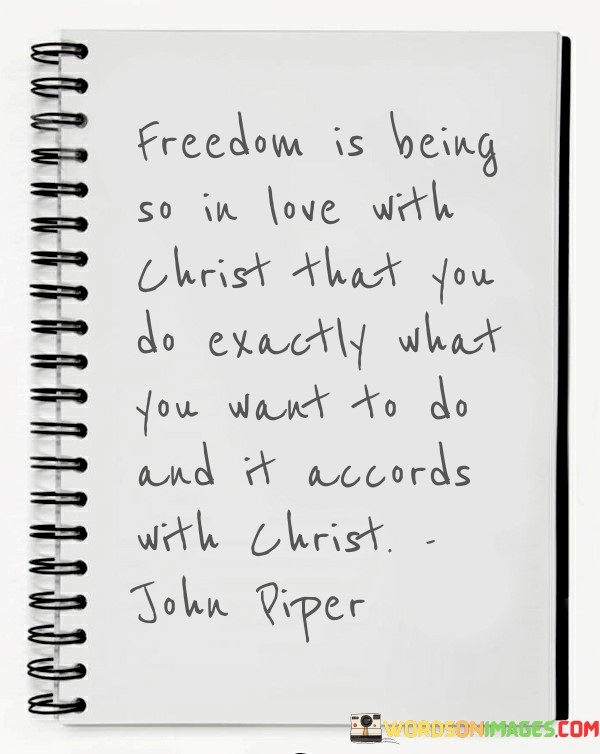 Freedom is being
so in love with
Christ that you
do exactly what
you want to do
and it accords
with Christ. -
John Piper
WORDSONIMAGES.COM